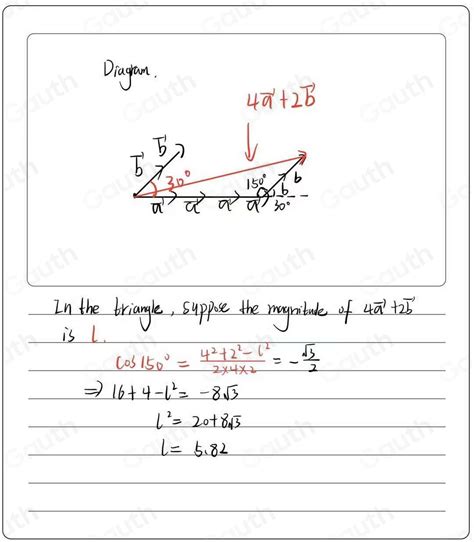 Diagram.
4a⃗+2b⃗
b⃗
b⃗
30°
150°
b
b
a⃗ a⃗ a⃗ a⃗
30°
In the triangle, suppose the magnitude of 4a⃗+2b⃗
is l.
cos150° = (4²+2²-l²)/(2×4×2) = -√3/2
⇒ 16+4-l² = -8√3
l² = 20+8√3
l = 5.82
Gauth